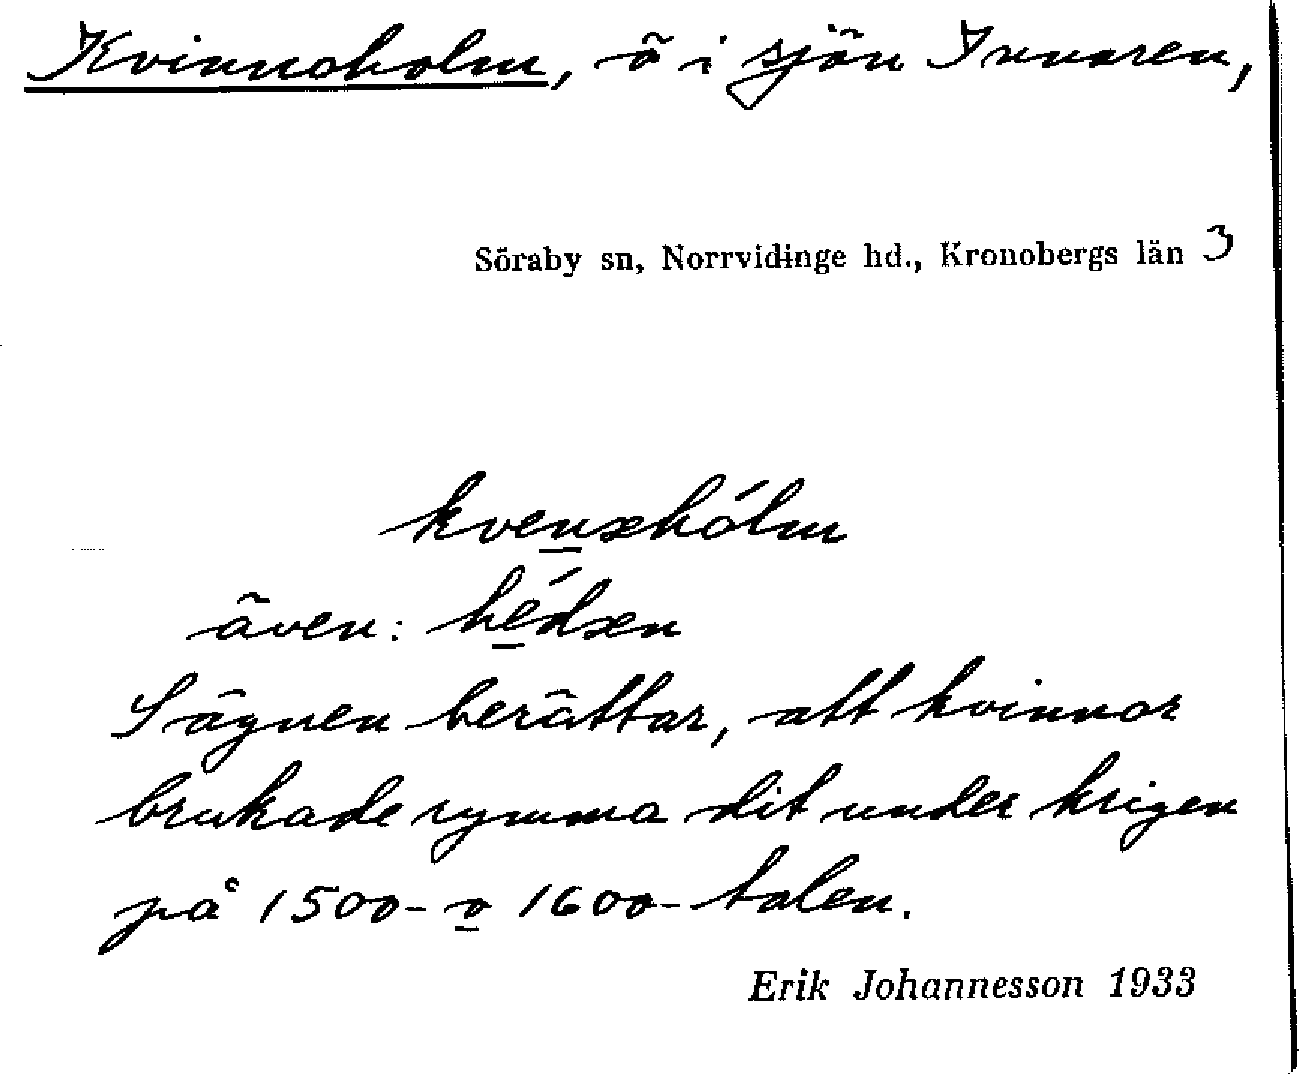 Kvinnoholm, ö i sjön Innaren,
Söraby sn, Norrvidinge hd., Kronobergs län 3
kvenəhólm
även: hédən
Sägnen berättar, att kvinnor
brukade rymma dit under krigen
på 1500- o 1600-talen.
Erik Johannesson 1933